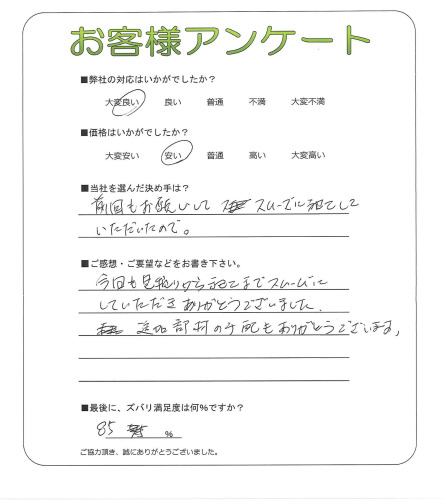 お客様アンケート
■弊社の対応はいかがでしたか？
大変良い 良い 普通 不満 大変不満
■価格はいかがでしたか？
大変安い 安い 普通 高い 大変高い
■当社を選んだ決め手は？
前回もお願いして スムーズに対応して
いただいたので。
■ご感想・ご要望などをお書き下さい。
今回も見積りから対応までスムーズに
していただきありがとうございました。
追加部材の手配もありがとうございます。
■最後に、ズバリ満足度は何％ですか？
85 %
ご協力頂き、誠にありがとうございました。